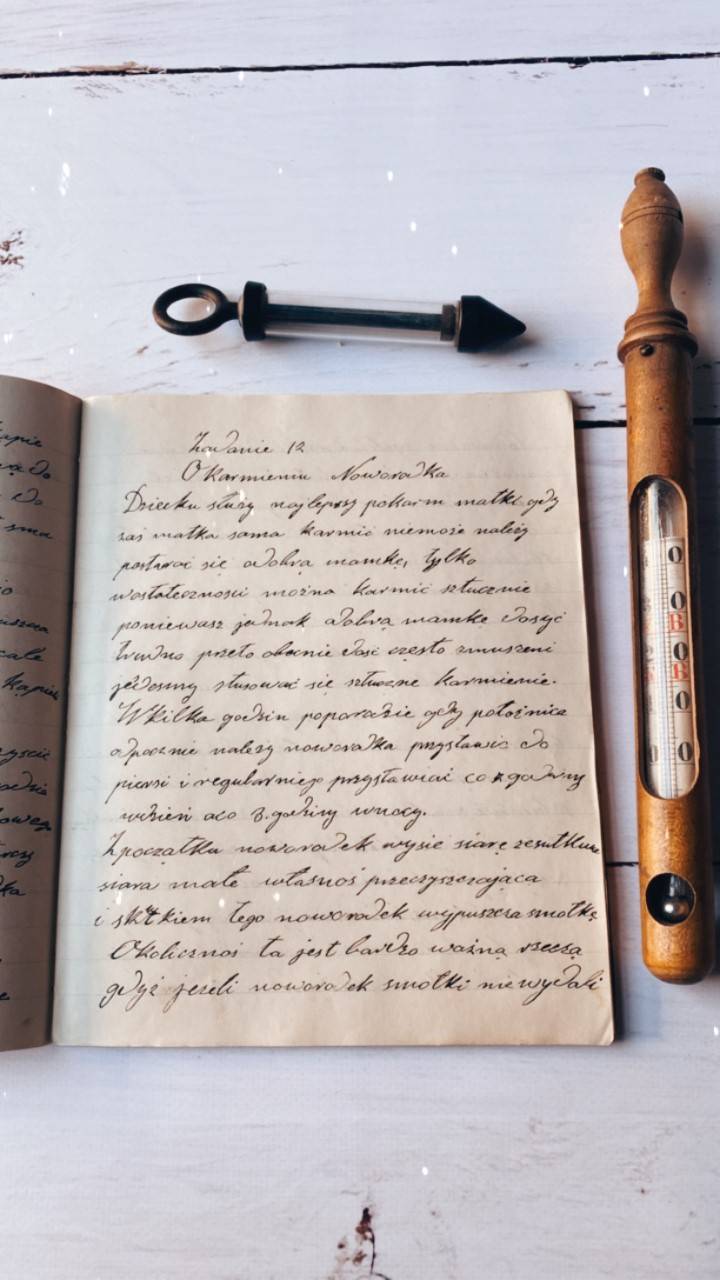 Zadanie 12
O karmieniu Noworodka
Dziecku służy najlepszy pokarm matki gdy
zaś matka sama karmić niemoże należy
postarać się odobrą mamkę, tylko
wostateczności można karmić sztucznie
ponieważ jednak odobrą mamkę dosyć
trudno przeto obecnie dość często zmuszeni
jesteśmy stosować się sztuczne karmienie.
Wkilka godzin poporodzie gdy położnica
odpocznie należy noworodka przystawić do
piersi i regularniejo przystawiać co godziny
wdzień aco 3. godziny wnocy.
Zpoczątku noworodek wysie siarę
siara małe własnoś przeczyszczająca
i skutkiem tego noworodek wypuszcza smołkę
Okolicznoś ta jest bardzo ważną rzeczą
gdyż jeżeli noworodek smołki niewydali